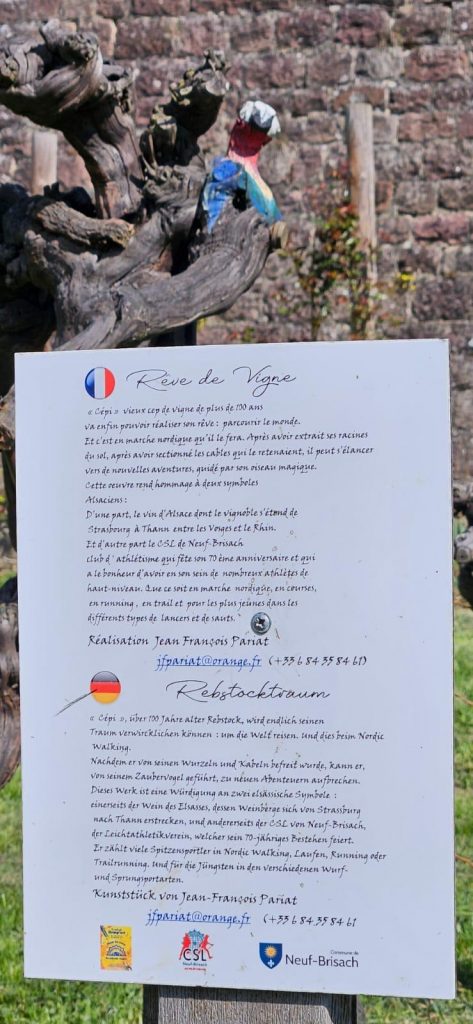 Rêve de Vigne
« Cépi » vieux cep de vigne de plus de 100 ans
va enfin pouvoir réaliser son rêve : parcourir le monde.
Et c'est en marche nordique qu'il le fera. Après avoir extrait ses racines
du sol, après avoir sectionné les cables qui le retenaient, il peut s'élancer
vers de nouvelles aventures, guidé par son oiseau magique.
Cette oeuvre rend hommage à deux symboles
Alsaciens :
D'une part, le vin d'Alsace dont le vignoble s'étend de
Strasbourg à Thann entre les Vosges et le Rhin.
Et d'autre part le CSL de Neuf-Brisach
club d' athlétisme qui fête son 70 ème anniversaire et qui
a le bonheur d'avoir en son sein de nombreux athlètes de
haut-niveau. Que ce soit en marche nordique, en courses,
en running, en trail et pour les plus jeunes dans les
différents types de lancers et de sauts.
Réalisation Jean François Pariat
jfpariat@orange.fr (+33 6 84 35 84 61)
Rebstocktraum
« Cépi », über 100 Jahre alter Rebstock, wird endlich seinen
Traum verwircklichen können : um die Welt reisen. Und dies beim Nordic
Walking.
Nachdem er von seinen Wurzeln und Kabeln befreit wurde, kann er,
von seinem Zaubervogel geführt, zu neuen Abenteuern aufbrechen.
Dieses Werk ist eine Würdigung an zwei elsässische Symbole :
einerseits der Wein des Elsasses, dessen Weinberge sich von Strassburg
nach Thann erstrecken, und andererseits der CSL von Neuf-Brisach,
der Leichtathletikverein, welcher sein 70-jähriges Bestehen feiert.
Er zählt viele Spitzensportler in Nordic Walking, Laufen, Running oder
Trailrunning. Und für die Jüngsten in den verschiedenen Wurf-
und Sprungsportarten.
Kunststück von Jean-François Pariat
jfpariat@orange.fr (+33 6 84 35 84 61
CSL
Neuf-Brisach
Commune de
Neuf-Brisach